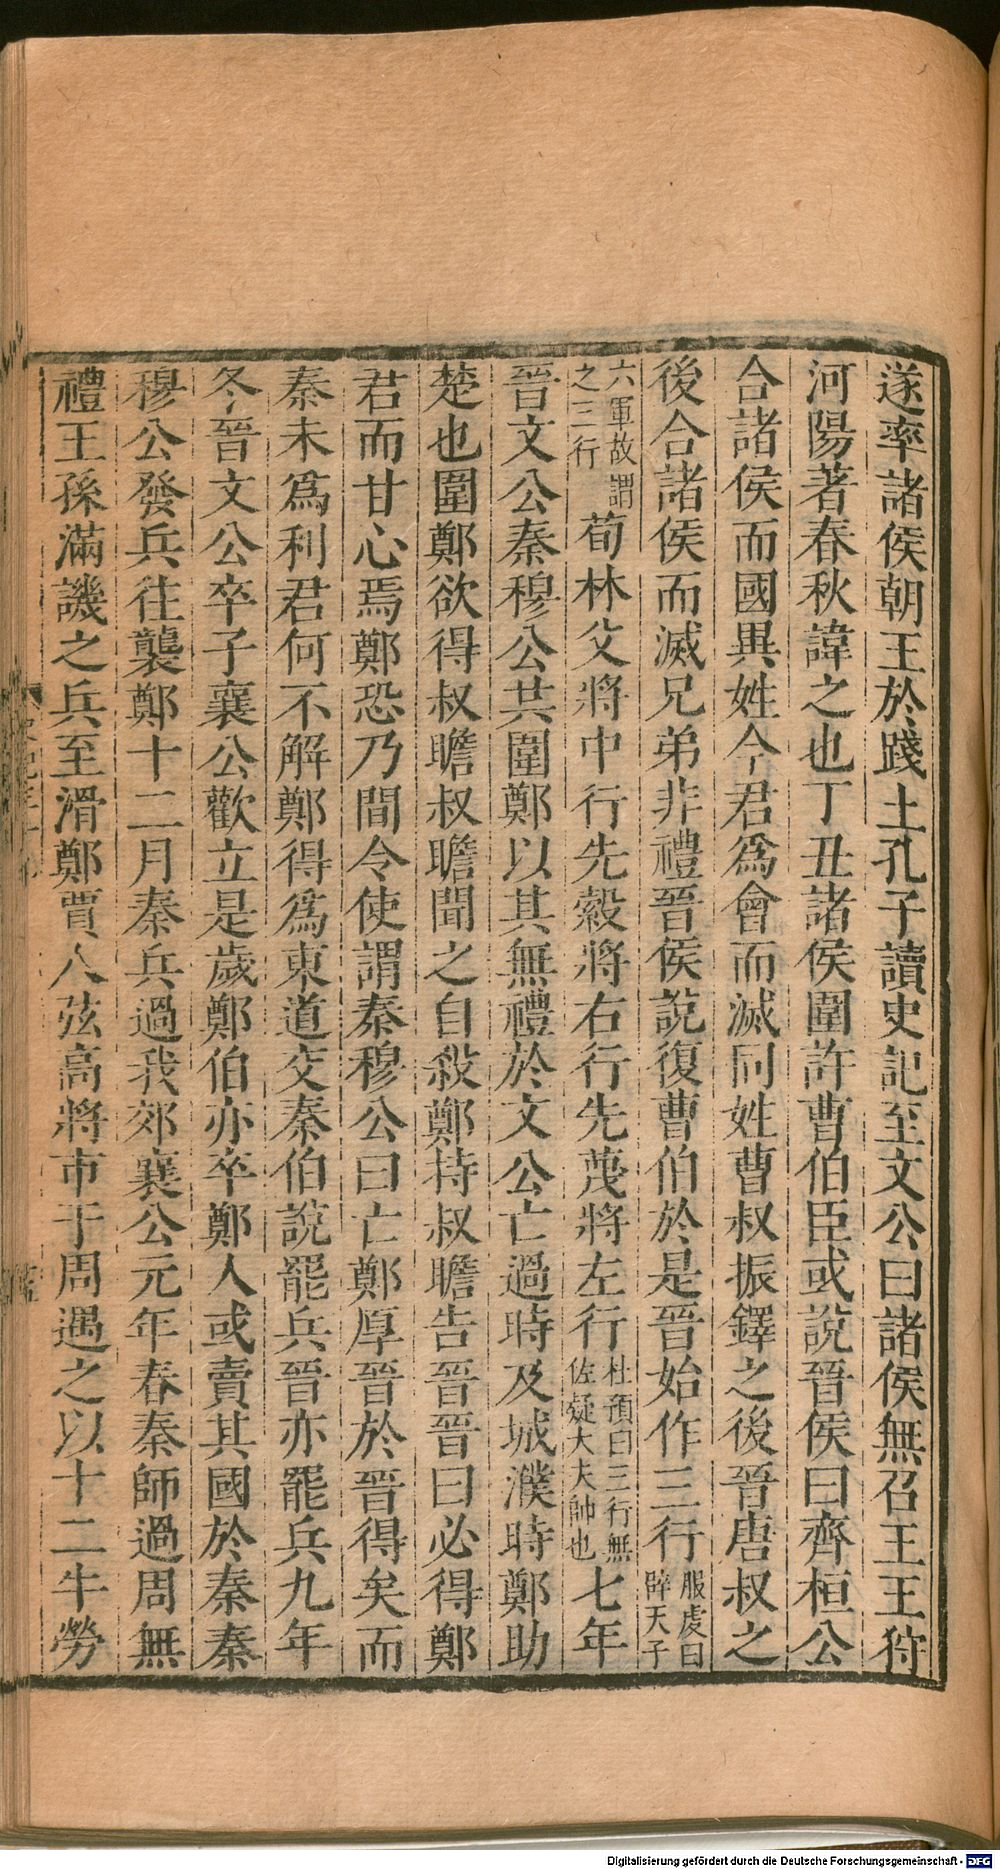 遂率諸侯朝王於踐土孔子讀史記至文公曰諸侯無召王王狩
河陽著春秋諱之也丁丑諸侯圍許曹伯臣或說晉侯曰齊桓公
合諸侯而國異姓今君爲會而滅同姓曹叔振鐸之後晉唐叔之
後合諸侯而滅兄弟非禮晉侯說復曹伯於是晉始作三行服虔曰辟天子
六軍故謂之三行荀林父將中行先縠將右行先蔑將左行杜預曰三行無佐疑大夫帥也七年
晉文公秦穆公共圍鄭以其無禮於文公亡過時及城濮時鄭助
楚也圍鄭欲得叔瞻叔瞻聞之自殺鄭持叔瞻告晉晉曰必得鄭
君而甘心焉鄭恐乃間令使謂秦穆公曰亡鄭厚晉於晉得矣而
秦未爲利君何不解鄭得爲東道交秦伯說罷兵晉亦罷兵九年
冬晉文公卒子襄公歡立是歲鄭伯亦卒鄭人或賣其國於秦秦
穆公發兵往襲鄭十二月秦兵過我郊襄公元年春秦師過周無
禮王孫滿譏之兵至滑鄭賈人弦高將市于周遇之以十二牛勞
Digitalisierung gefördert durch die Deutsche Forschungsgemeinschaft - DFG